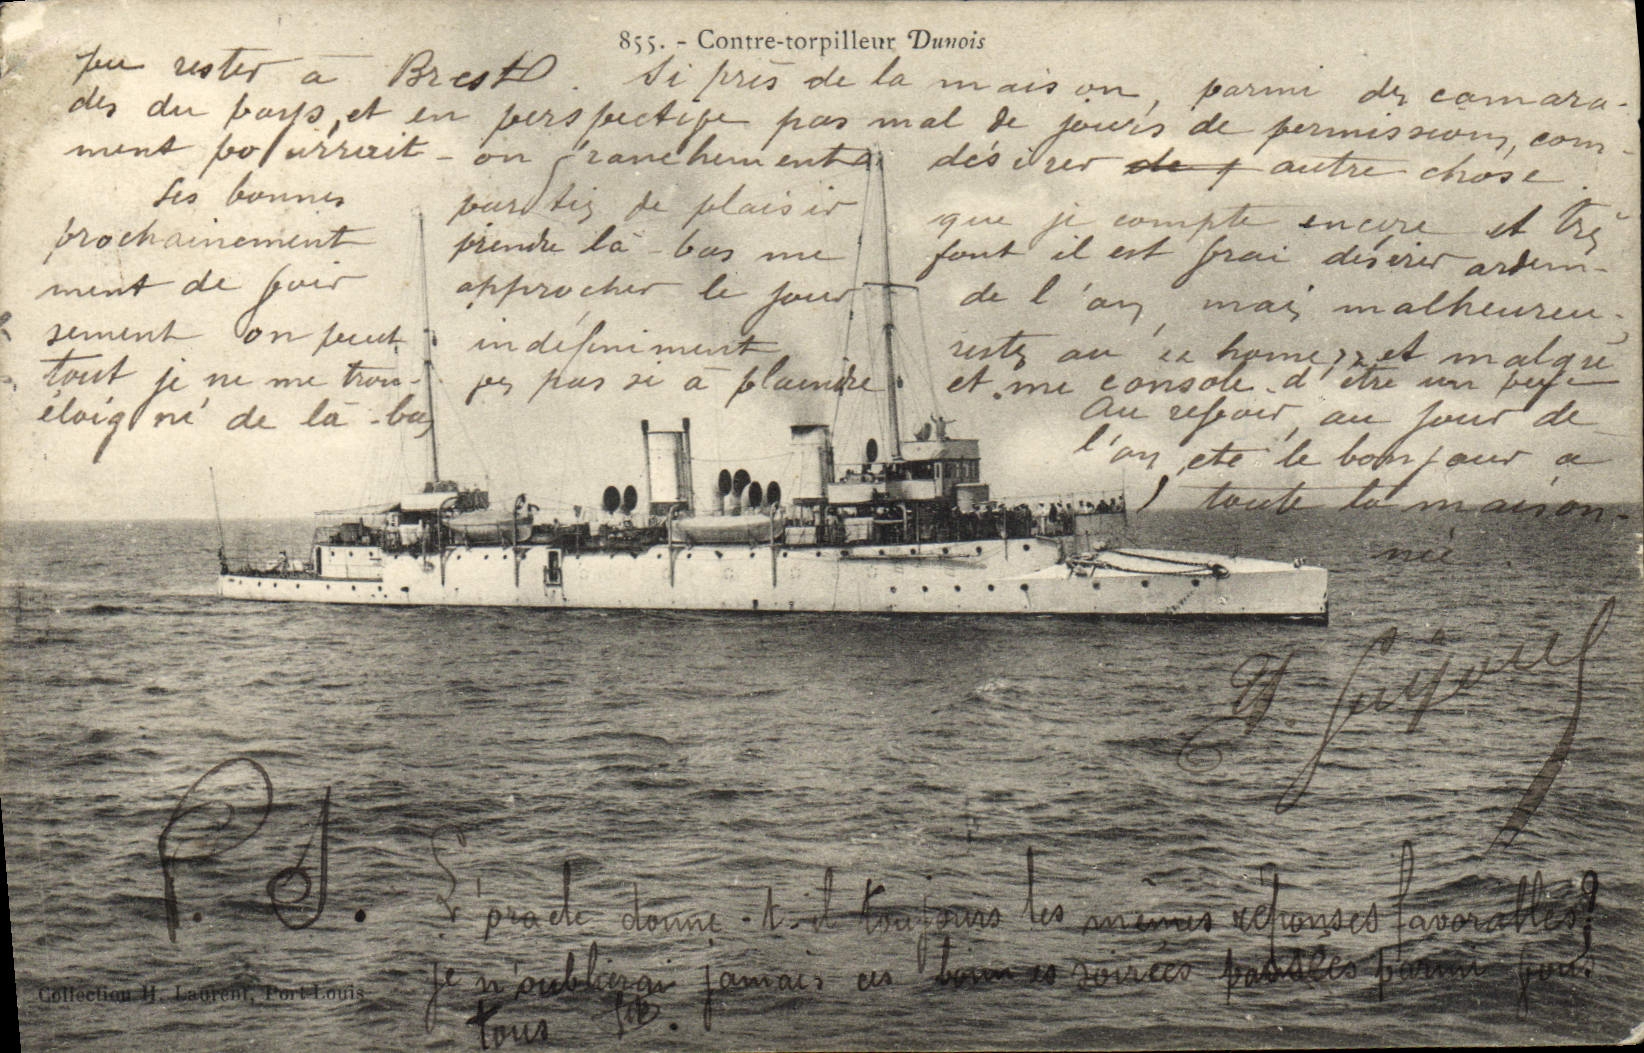 855. - Contre-torpilleur Dunois
pu rester à Brest. Si près de la maison, parmi des camara-
des du pays, et en perspective pas mal de jours de permissions, com-
ment pourrait-on franchement désirer autre chose.
Les bonnes parties de plaisir que je compte encore et très
prochainement prendre là-bas me font il est vrai désirer ardem-
ment de voir approcher le jour de l'an, mais malheureu-
sement on peut indéfiniment rester au "home", et malgré
tout je ne me trouve pas si à plaindre et me console d'être un peu
éloigné de là-bas
Au revoir, au jour de
l'an, et le bonjour à
toute la maison-
née
P. S.
L'oracle donne-t-il toujours les mêmes réponses favorables?
je n'oublierai jamais ces bonnes soirées passées parmi vous
tous
Collection H. Laurent, Port-Louis